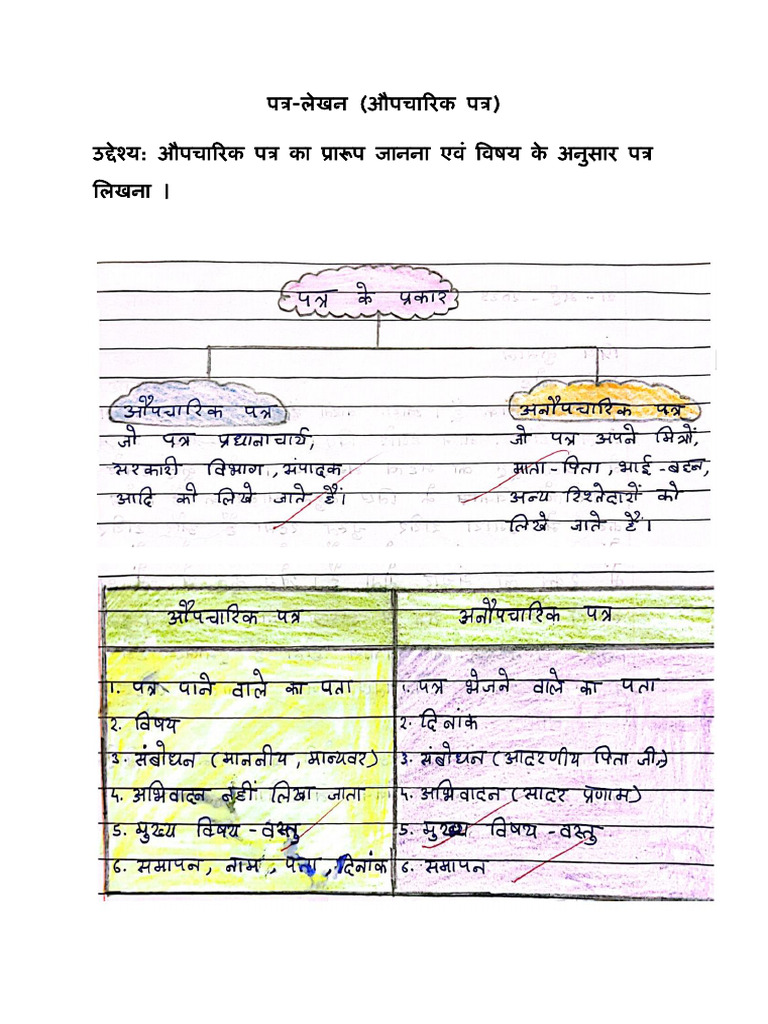 पत्र-लेखन (औपचारिक पत्र)
उद्देश्य: औपचारिक पत्र का प्रारूप जानना एवं विषय के अनुसार पत्र
लिखना |
पत्र के प्रकार
औपचारिक पत्र
जो पत्र प्रधानाचार्य,
सरकारी विभाग, संपादक
आदि को लिखे जाते हैं।
अनौपचारिक पत्र
जो पत्र अपने मित्रों,
माता-पिता, भाई-बहन,
अन्य रिश्तेदारों को
लिखे जाते हैं।
औपचारिक पत्र
1. पत्र पाने वाले का पता
2. विषय
3. संबोधन (माननीय, मान्यवर)
4. अभिवादन नहीं लिखा जाता
5. मुख्य विषय-वस्तु
6. समापन, नाम, पता, दिनांक
अनौपचारिक पत्र
1. पत्र भेजने वाले का पता
2. दिनांक
3. संबोधन (आदरणीय पिता जी,)
4. अभिवादन (सादर प्रणाम)
5. मुख्य विषय-वस्तु
6. समापन